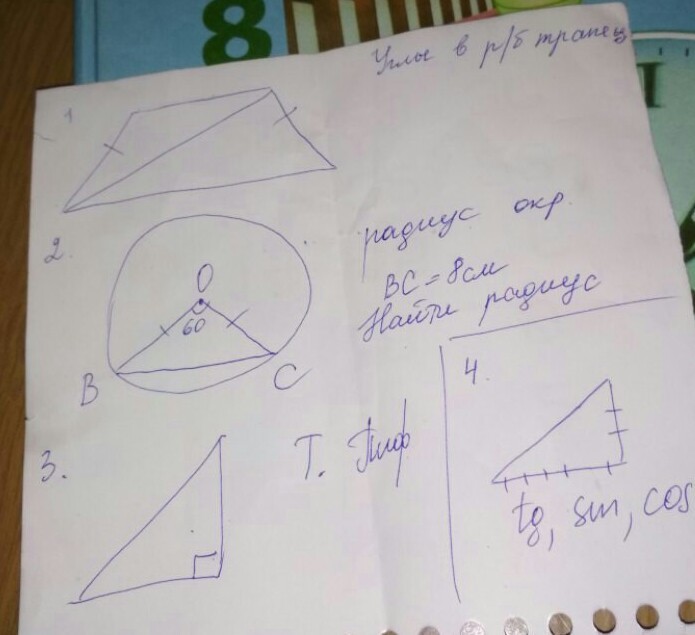 8
Углы в р/б трапец
1
2.
радиус окр.
BC = 8 см
Найти радиус
O
60
B
C
3.
Т. Пиф
4.
tg, sin, cos